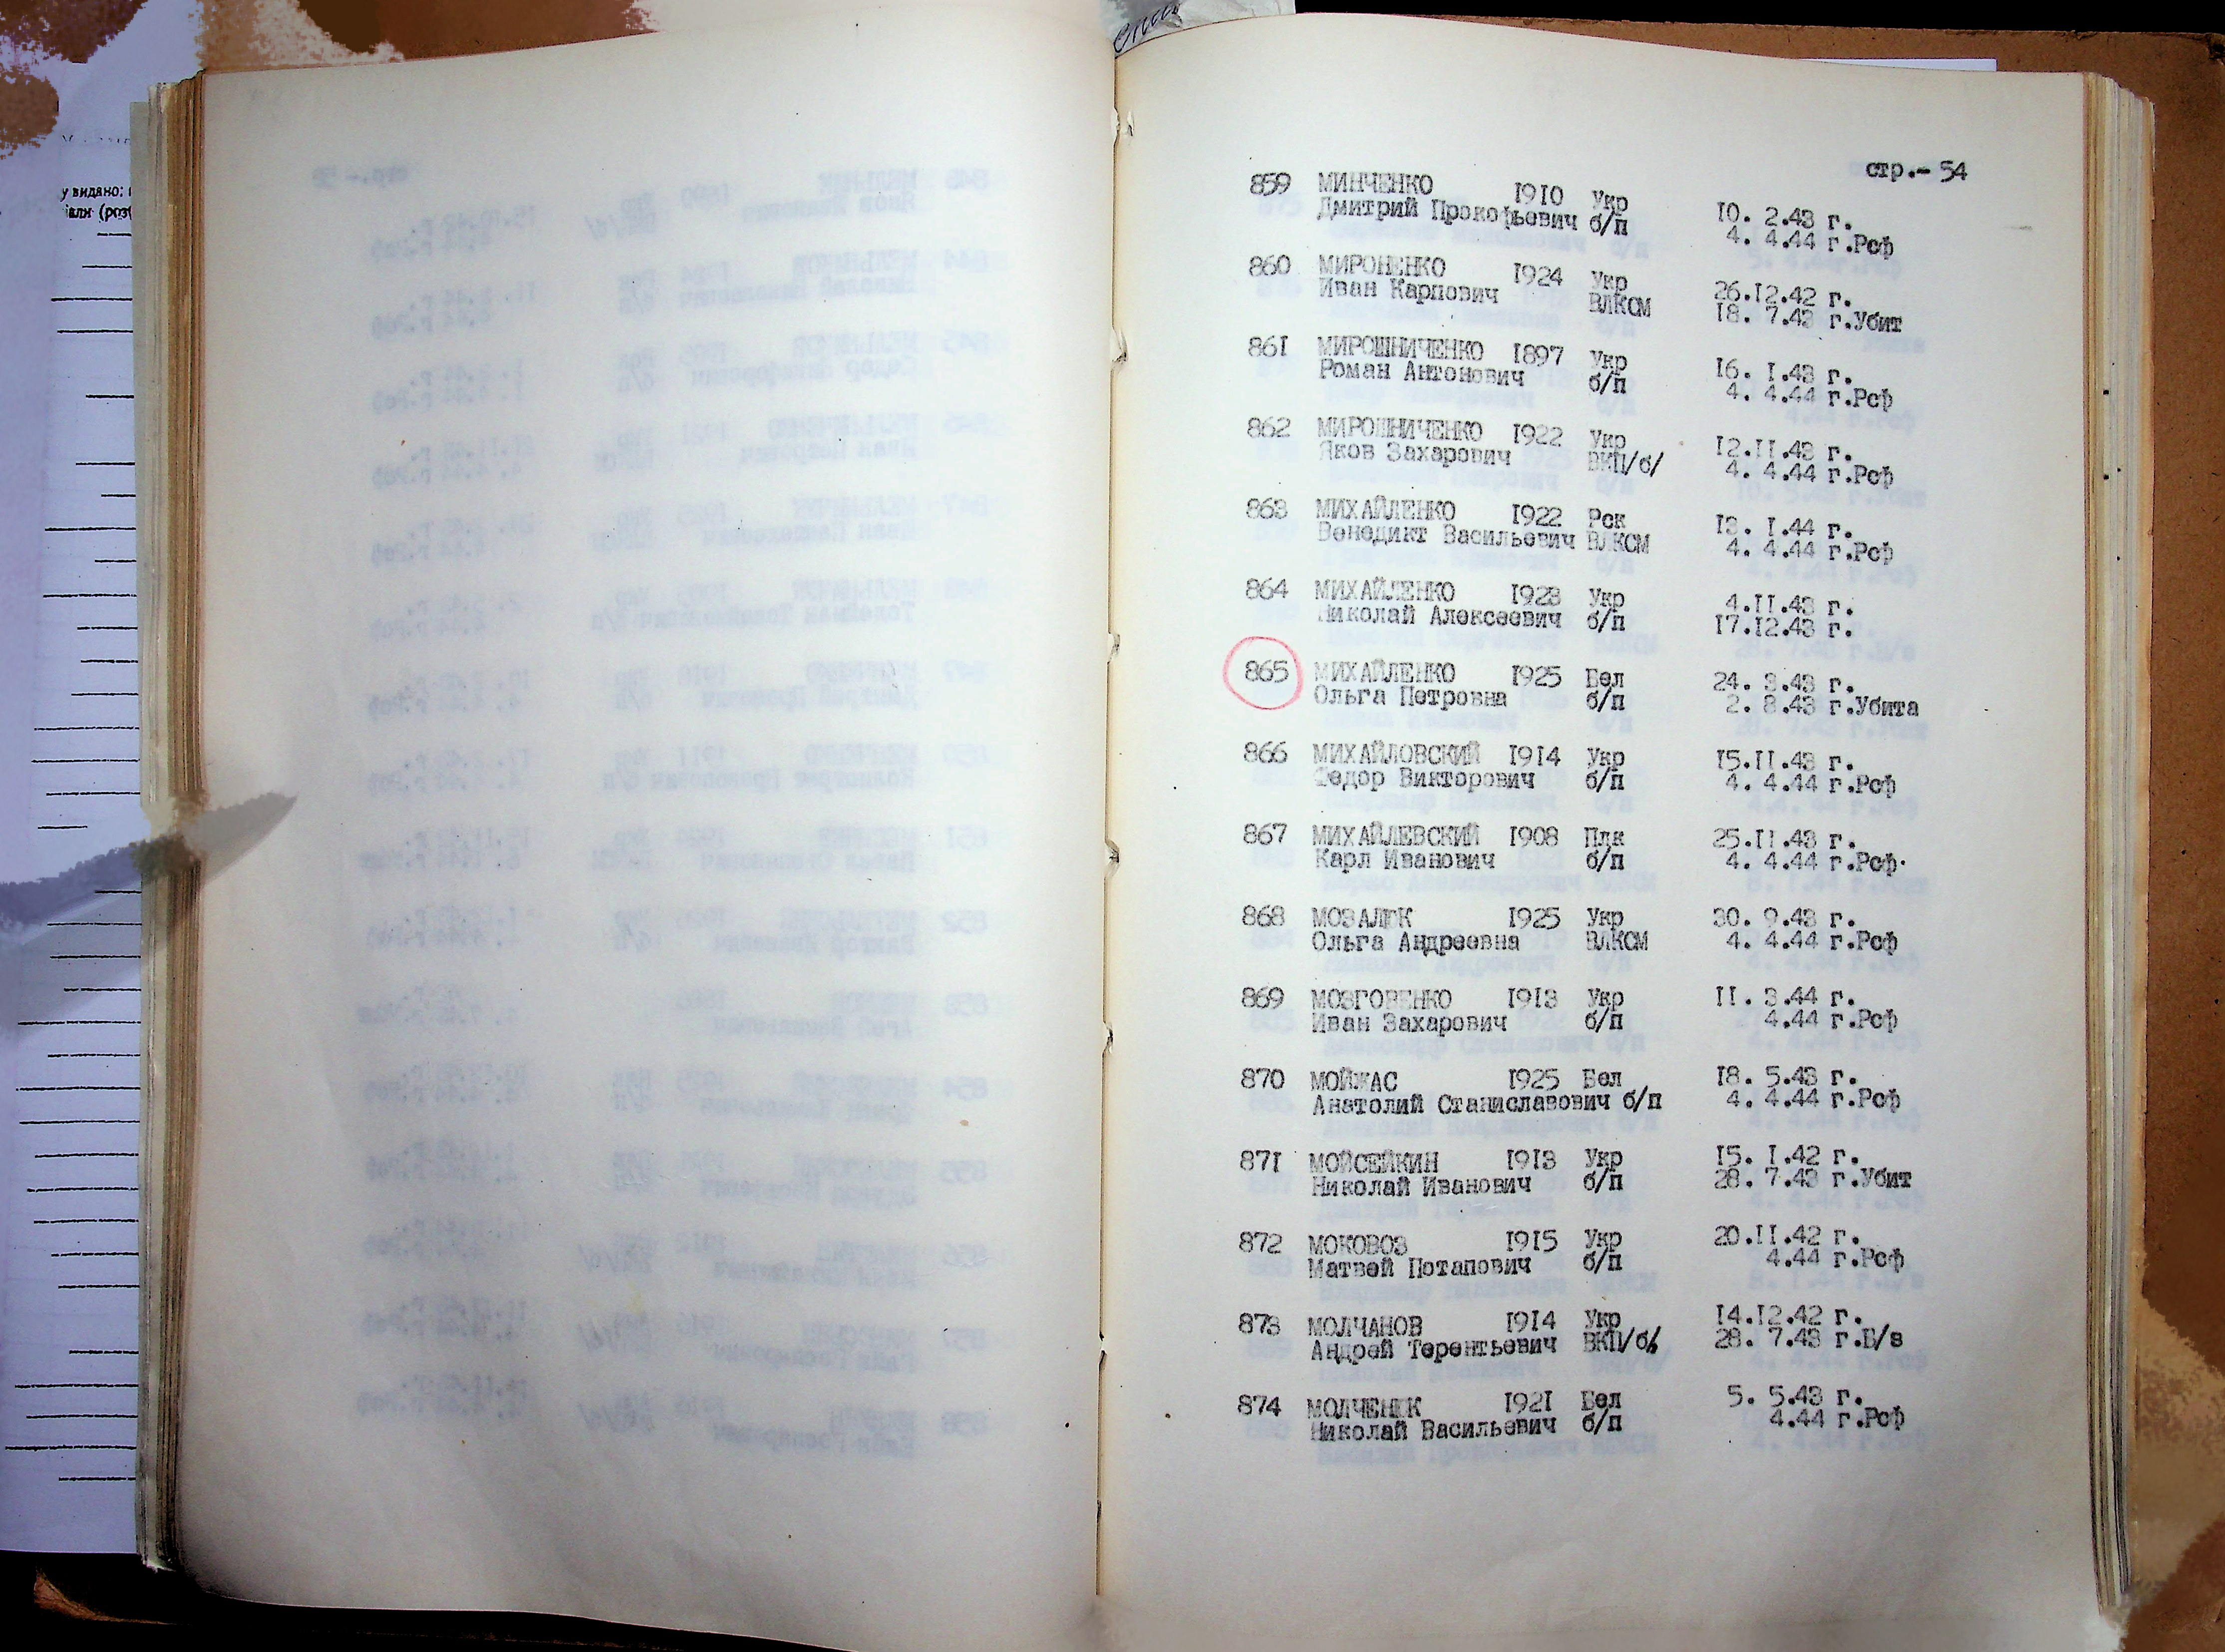 у видано:
стр.- 54
859 МИНЧЕНКО 1910 Укр 10. 2.43 г.
Дмитрий Прокофьевич б/п 4. 4.44 г.Рсф
860 МИРОНЕНКО 1924 Укр 26.12.42 г.
Иван Карпович ВЛКСМ 18. 7.43 г.Убит
861 МИРОШНИЧЕНКО 1897 Укр 16. 1.43 г.
Роман Антонович б/п 4. 4.44 г.Рсф
862 МИРОШНИЧЕНКО 1922 Укр 12.11.43 г.
Яков Захарович ВКП/б/ 4. 4.44 г.Рсф
863 МИХАЙЛЕНКО 1922 Рск 13. 1.44 г.
Венедикт Васильевич ВЛКСМ 4. 4.44 г.Рсф
864 МИХАЙЛЕНКО 1923 Укр 4.11.43 г.
Николай Алексеевич б/п 17.12.43 г.
865 МИХАЙЛЕНКО 1925 Бел 24. 3.43 г.
Ольга Петровна б/п 2. 8.43 г.Убита
866 МИХАЙЛОВСКИЙ 1914 Укр 15.11.43 г.
Федор Викторович б/п 4. 4.44 г.Рсф
867 МИХАЙЛЕВСКИЙ 1908 Плк 25.11.43 г.
Карл Иванович б/п 4. 4.44 г.Рсф.
868 МОЗАЛЮК 1925 Укр 30. 9.43 г.
Ольга Андреевна ВЛКСМ 4. 4.44 г.Рсф
869 МОЗГОВЕНКО 1913 Укр 11. 3.44 г.
Иван Захарович б/п 4.44 г.Рсф
870 МОЙЖАС 1925 Бел 18. 5.43 г.
Анатолий Станиславович б/п 4. 4.44 г.Рсф
871 МОЙСЕЙКИН 1913 Укр 15. 1.42 г.
Николай Иванович б/п 28. 7.43 г.Убит
872 МОКОВОЗ 1915 Укр 20.11.42 г.
Матвей Потапович б/п 4.44 г.Рсф
873 МОЛЧАНОВ 1914 Укр 14.12.42 г.
Андрей Терентьевич ВКП/б/ 28. 7.43 г.Б/в
874 МОЛЧЕНЮК 1921 Бел 5. 5.43 г.
Николай Васильевич б/п 4.44 г.Рсф